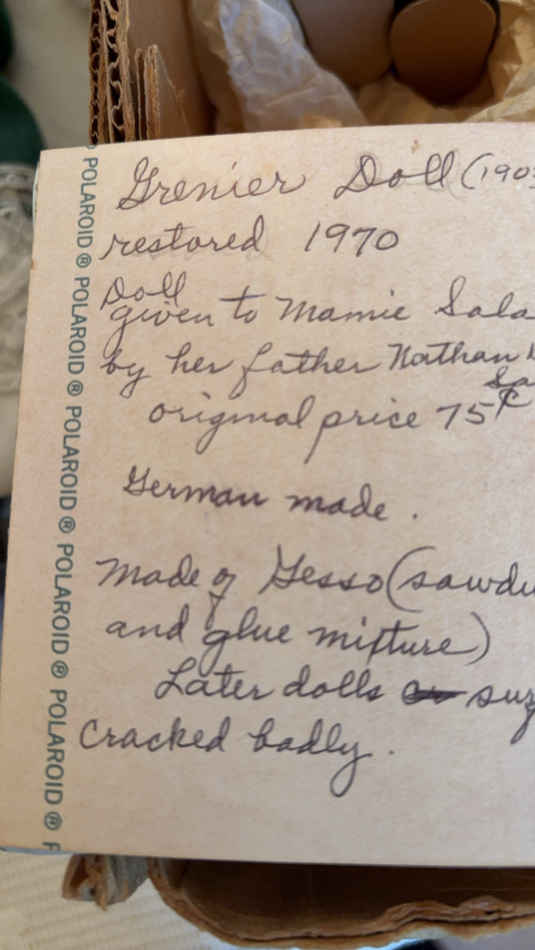 POLAROID ® POLAROID ® POLAROID ® POLAROID ® POLAROID ® POLAROID ® P
Grenier Doll (190
restored 1970
Doll
given to Mamie Sala
by her father Nathan
Sa
original price 75¢
German made.
Made of Gesso (sawdu
and glue mixture)
Later dolls
cracked badly.